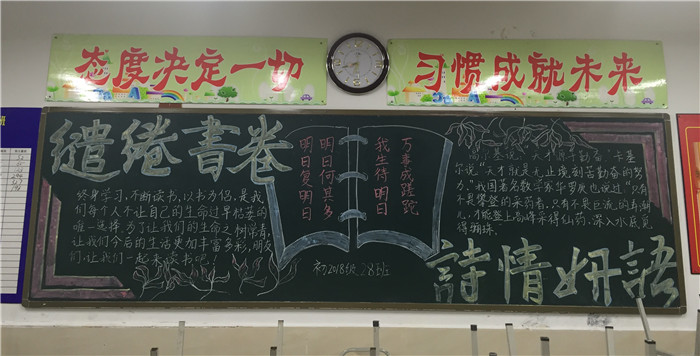 态度决定一切
习惯成就未来
缱绻书卷
终身学习，不断读书，以书为侣，是我
们每个人不让自己的生命过早枯萎的
唯一选择，为了让我们的生命之树常青，
让我们今后的生活更加丰富多彩，朋友
们，让我们一起来读书吧！
明日复明日
明日何其多
我生待明日
万事成蹉跎
初2018级28班
高尔基说："天才出于勤奋"卡莱
尔说"天才就是无止境刻苦勤奋的努
力。"我国著名数学家华罗庚也说过"只有
不畏攀登的采药者，只有不畏巨浪的弄潮
儿，才能登上高峰采得仙药，深入水底觅
得骊珠。
詩情妍語